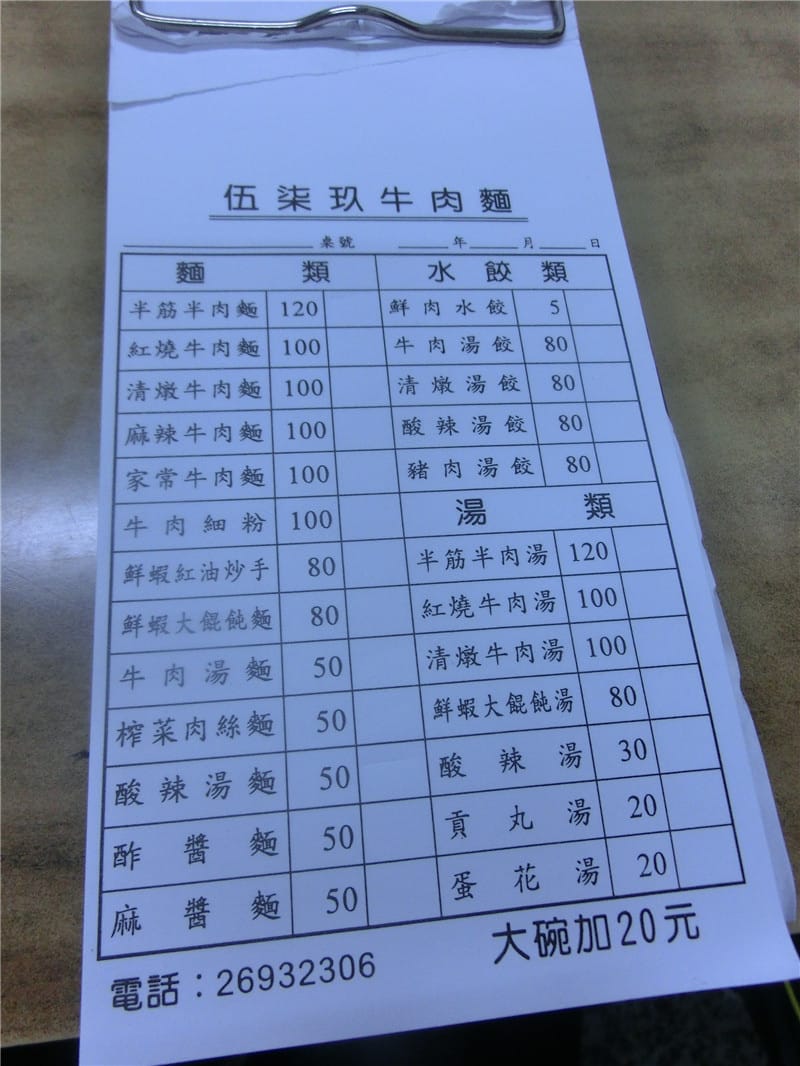 伍柒玖牛肉麵
桌號 年 月 日
麵類
半筋半肉麵 120
紅燒牛肉麵 100
清燉牛肉麵 100
麻辣牛肉麵 100
家常牛肉麵 100
牛肉細粉 100
鮮蝦紅油炒手 80
鮮蝦大餛飩麵 80
牛肉湯麵 50
榨菜肉絲麵 50
酸辣湯麵 50
酢醬麵 50
麻醬麵 50
水餃類
鮮肉水餃 5
牛肉湯餃 80
清燉湯餃 80
酸辣湯餃 80
豬肉湯餃 80
湯類
半筋半肉湯 120
紅燒牛肉湯 100
清燉牛肉湯 100
鮮蝦大餛飩湯 80
酸辣湯 30
貢丸湯 20
蛋花湯 20
大碗加20元
電話：26932306